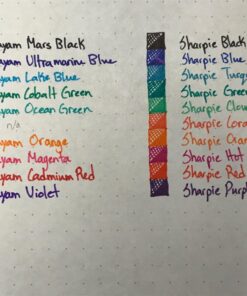 yam Mars Black Sharpie Black
yam Ultramarine Blue Sharpie Blue
yam Lake Blue Sharpie Turq
yam Cobalt Green Sharpie Green
yam Ocean Green Sharpie Clov
n/a Sharpie Cora
yam Orange Sharpie Oran
yam Magenta Sharpie Hot
yam Cadmium Red Sharpie Red
yam Violet Sharpie Purp